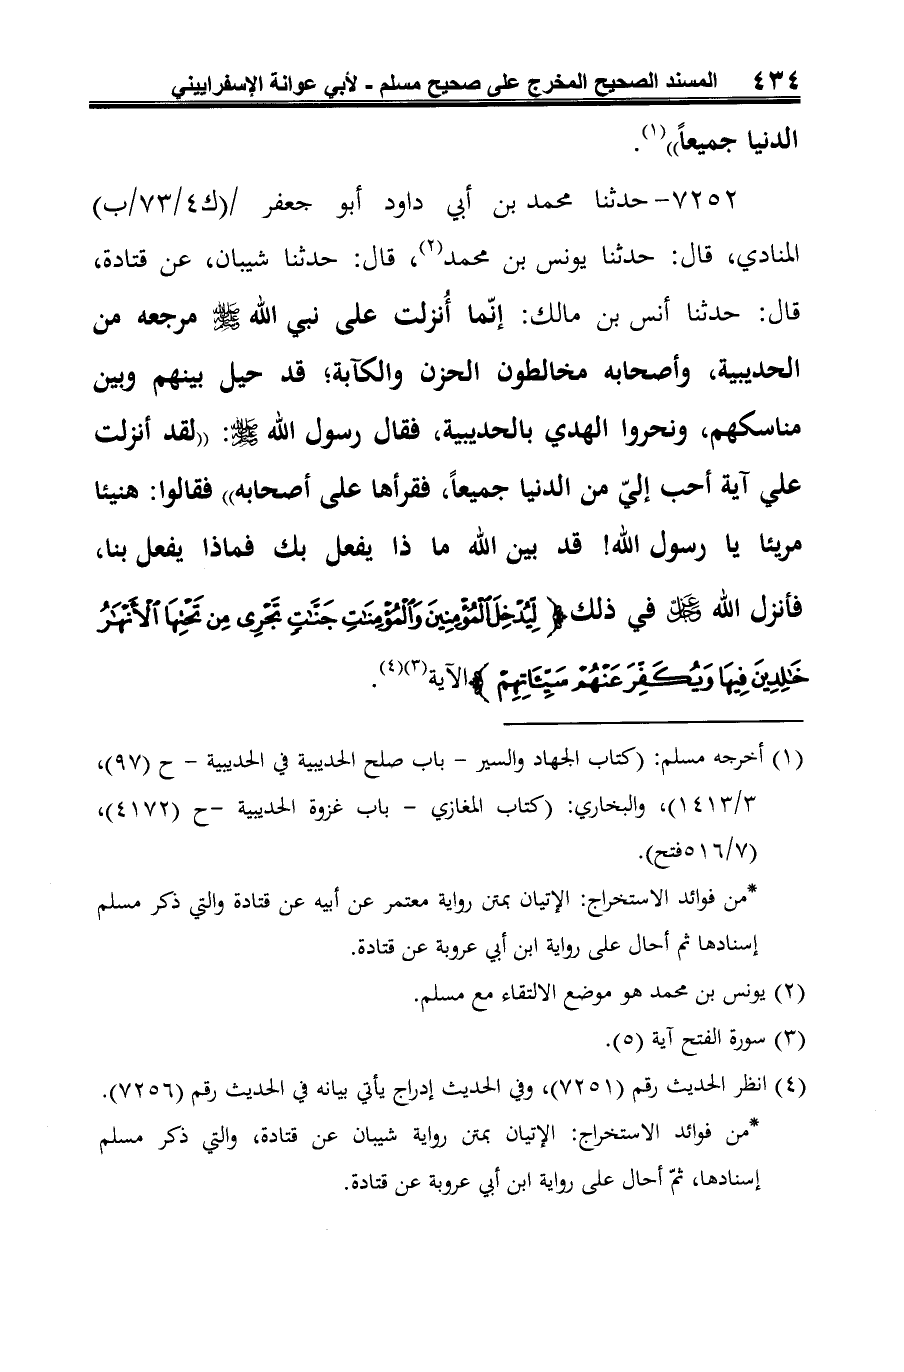 ٤٣٤ المسند الصحيح المخرج على صحيح مسلم - لأبي عوانة الإسفراييني
الدنيا جميعاً))(١).
٧٢٥٢- حدثنا محمد بن أبي داود أبو جعفر /(ك٤/٧٣/ب)
المنادي، قال: حدثنا يونس بن محمد(٢)، قال: حدثنا شيبان، عن قتادة،
قال: حدثنا أنس بن مالك: إنّما أُنزلت على نبي الله ﷺ مرجعه من
الحديبية، وأصحابه مخالطون الحزن والكآبة؛ قد حيل بينهم وبين
مناسكهم، ونحروا الهدي بالحديبية، فقال رسول الله ﷺ: ((لقد أنزلت
علي آية أحب إليّ من الدنيا جميعاً، فقرأها على أصحابه)) فقالوا: هنيئا
مريئا يا رسول الله! قد بين الله ما ذا يفعل بك فماذا يفعل بنا،
فأنزل الله ﷻ في ذلك﴿ لِّيُدْخِلَ ٱلْمُؤْمِنِينَ وَٱلْمُؤْمِنَٰتِ جَنَّٰتٍ تَجْرِى مِن تَحْتِهَا ٱلْأَنْهَٰرُ
خَٰلِدِينَ فِيهَا وَيُكَفِّرَ عَنْهُمْ سَيِّـَٔاتِهِمْ ﴾الآية(٣)(٤).
(١) أخرجه مسلم: (كتاب الجهاد والسير - باب صلح الحديبية في الحديبية - ح (٩٧)،
١٤١٣/٣)، والبخاري: (كتاب المغازي - باب غزوة الحديبية -ح (٤١٧٢)،
(٥١٦/٧فتح).
*من فوائد الاستخراج: الإتيان بمتن رواية معتمر عن أبيه عن قتادة والتي ذكر مسلم
إسنادها ثم أحال على رواية ابن أبي عروبة عن قتادة.
(٢) يونس بن محمد هو موضع الالتقاء مع مسلم.
(٣) سورة الفتح آية (٥).
(٤) انظر الحديث رقم (٧٢٥١)، وفي الحديث إدراج يأتي بيانه في الحديث رقم (٧٢٥٦).
*من فوائد الاستخراج: الإتيان بمتن رواية شيبان عن قتادة، والتي ذكر مسلم
إسنادها، ثمّ أحال على رواية ابن أبي عروبة عن قتادة.